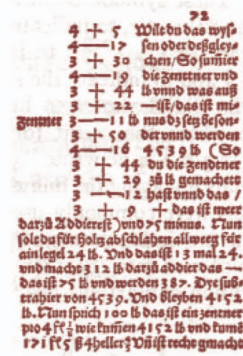 4 + 5 Wilt du das wys/
4 — 17 sen oder deßgley/
3 + 30 chen/ So sumier
4 — 19 die zenttner vnd
3 + 44 lb vnnd was auß
3 + 22 — ist/ das ist mi/
Zentner 3 — 11 lb nus dz setz beson/
3 + 50 der vnnd werden
4 — 16 4539 lb (So
3 + 44 du die zendtner
3 + 29 zů lb gemachett
3 — 12 hast vnnd das /
3 + 9 + das ist meer
darzů Addierest) vnd 75 minus. Nun
solt du für holtz abschlahen allweeg für
ain legel 24 lb. Vnd das ist 13 mal 24.
vnd macht 312 lb darzů addier das —
das ist 75 lb vnd werden 387. Dye sub/
trahier von 4539. Vnd bleyben 4152
lb. Nun sprich 100 lb das ist ein zentner
pro 4 fl ½ wie kumen 4152 lb vnd kumē
171 fl 5 ß 4 heller Vñ ist recht gemacht